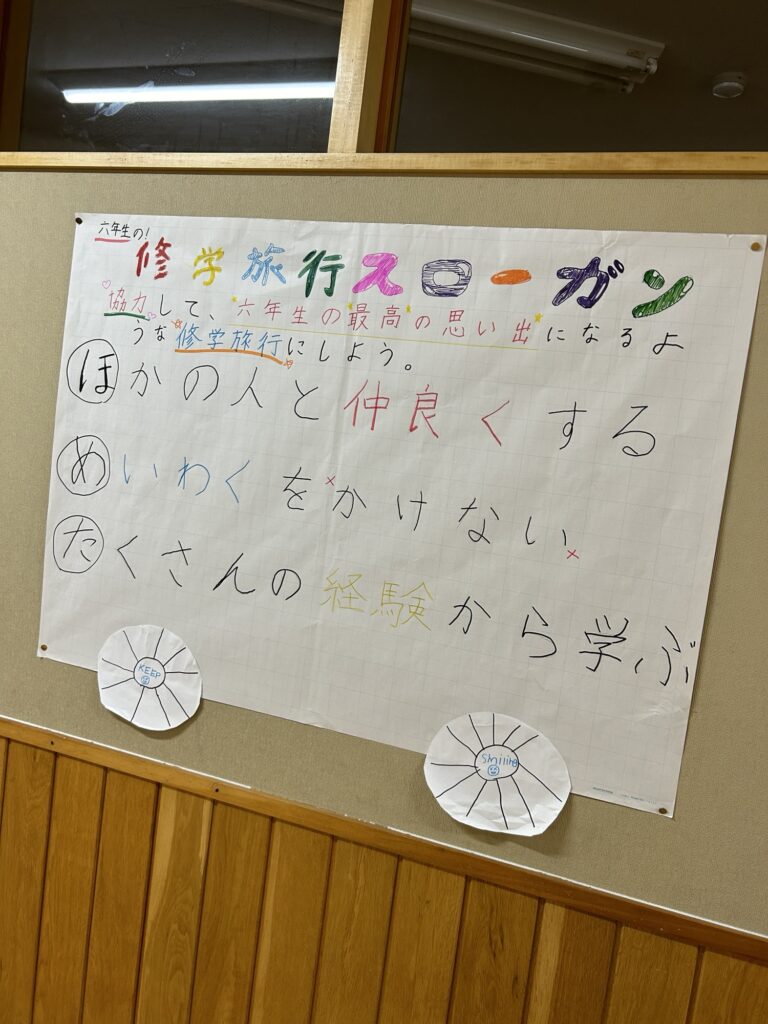 六年生の!
修学旅行スローガン
協力して、六年生の最高の思い出になるよ
うな修学旅行にしよう。
ほかの人と仲良くする
めいわくをかけない
たくさんの経験から学ぶ
KEEP